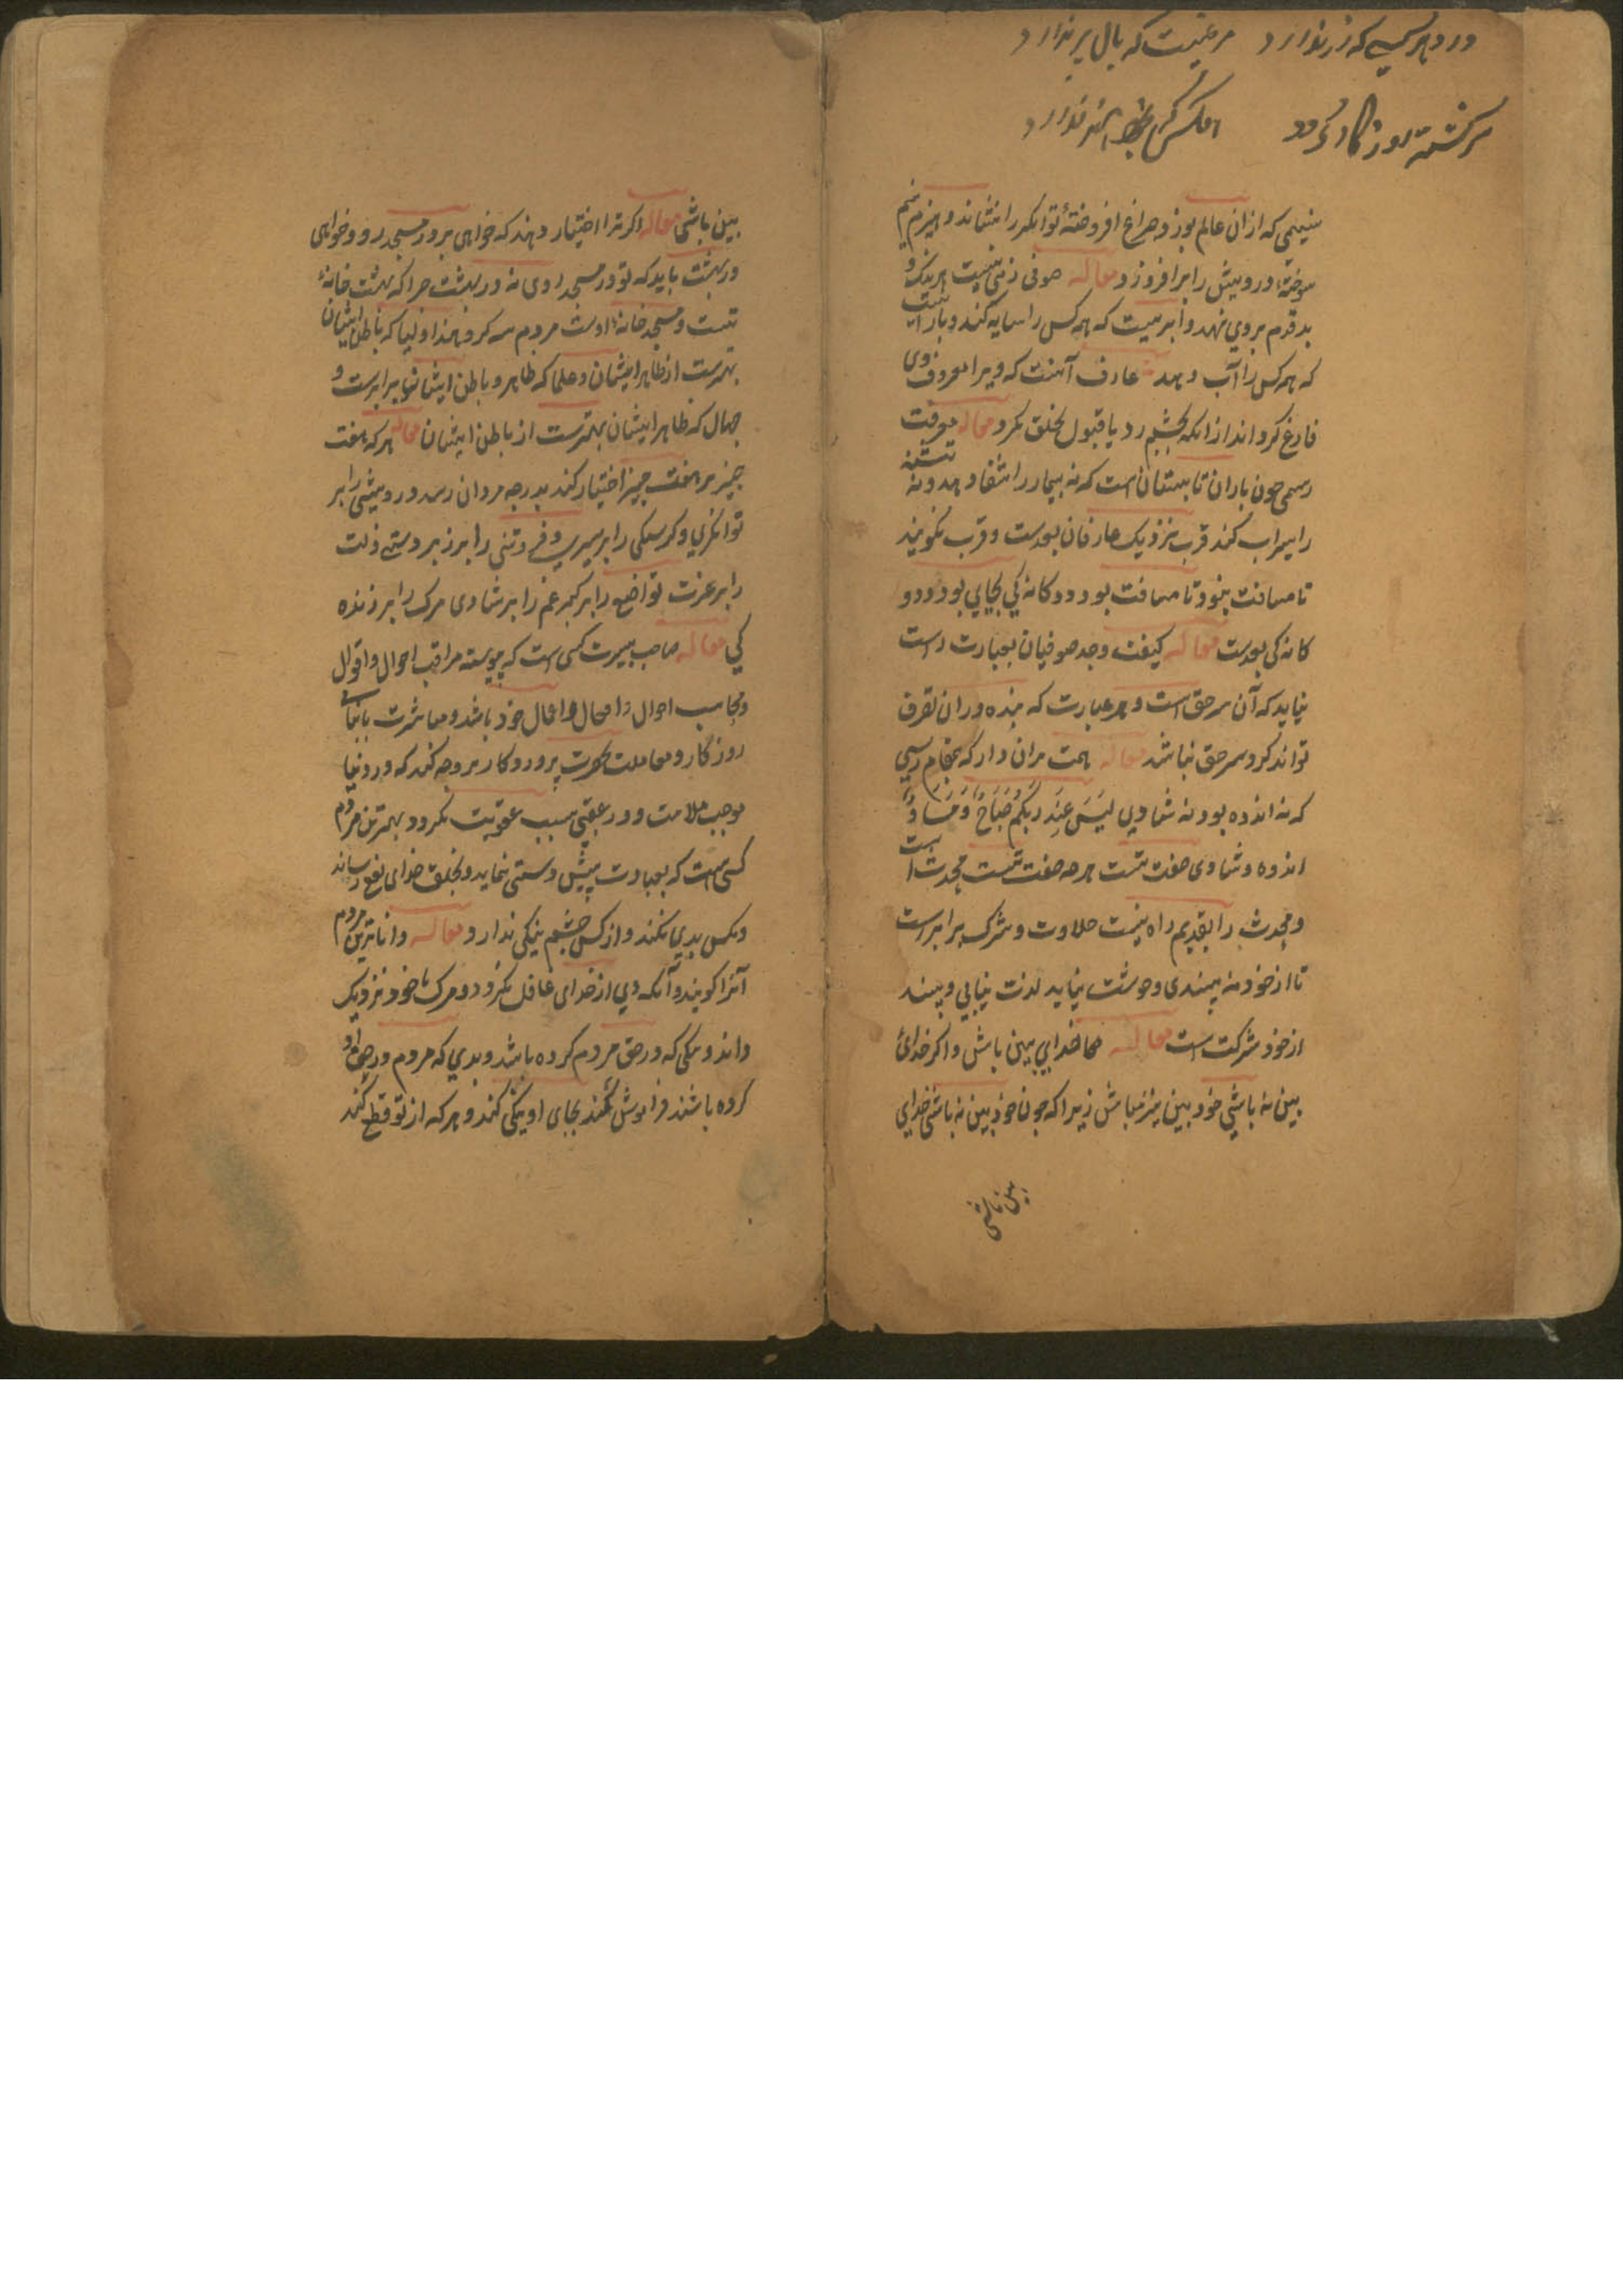 در دهر کسی که زر ندارد مرغیست که بال پر ندارد
سرکشته روزکار کردد
نسیمی که ازان عالم بوزد چراغ افروختهٔ توانکر را بنشاند و هیزم نیم
سوختهٔ درویش را برافروزد مقاله صوفی زمینیست هر نیک و
بد قدم بروی نهد و ابریست که همه کس را سایه کند و بارانیست
که همه کس را آب دهد عارف آنست که ویرا معروف وی
فارغ کرداند از انکه بچشم رد یا قبول بخلق نکرد مقاله معرفت
رسمی چون باران تابستان است که نه بیمار را شفا دهد و نه تشنه
را سیراب کند قرب نزدیک عارفان بعدست و قرب نکویند
تا مسافت نبود تا مسافت بود دوکانه کی بجای بود و دو
کانه کی بعدست مقاله کیفیت وجد صوفیان بعبارت راست
نیاید که آن سر حق است و هر عبارت که بنده دران تصرف
تواند کرد سر حق نباشد مقاله همت بران دار که بمقام رسی
که نه اندوه بود نه شادی لَیسَ عِندَ رَبِّکُم صَبَاحٌ وَ مَسَاءٌ
اندوه و شادی صفت تست هرچه صفت تست محدث است
و محدث را بقدیم راه نیست حلاوت و شرک برابر است
تا از خود نه پسندی و خوشت نیاید لذت نیابی و پسند
از خود شرکت است مقاله خدای بین باش و اکر خدای
بین نهٔ باشی خود بین نیز مباش زیرا که چون خود بین نهٔ باشی خدای
بین باشی
بین باشی مقاله اکر ترا اختیار دهند که خواهی برو در مسجد رو و خواهی
در بهشت باید که تو در مسجد روی نه در بهشت چرا که بهشت خانهٔ
تست و مسجد خانهٔ اوست مردم سه کروهند اولیا که باطن ایشان
بهترست از ظاهر ایشان و علما که ظاهر و باطن ایشان برابرست و
جهال که ظاهر ایشان بهترست از باطن ایشان مقاله هر که هفت
چیز بر هفت چیز اختیار کند بدرجه مردان رسد درویشی را بر
توانکری و کرسنکی را بر سیری و فروتنی را بر زبردستی ذلت
را بر عزت تواضع را بر کبر غم را بر شادی مرک را بر زنده
کی مقاله صاحب سیرت کسی است که پیوسته مراقب احوال و اقوال
و محاسب احوال و افعال خود باشد و معاشرت با ابنای
روزکار و معاملت بحضرت پروردکار بر وجه کند که در دنیا
موجب ملامت و در عقبی سبب عقوبت نکردد بهترین مردم
کسی است که بعبادت پیش دستی نماید و بخلق خدای نفع رساند
و بکس بدی نکند و از کس چشم نیکی ندارد مقاله داناترین مردم
آنرا کویند آنکه وی از خدای غافل نکردد و مرک با خود نزدیک
داند و نیکی که در حق مردم کرده باشد و بدی که مردم در حق او
کرده باشند فراموش کند بجای او نیکی کند و هر که از تو قطع کند